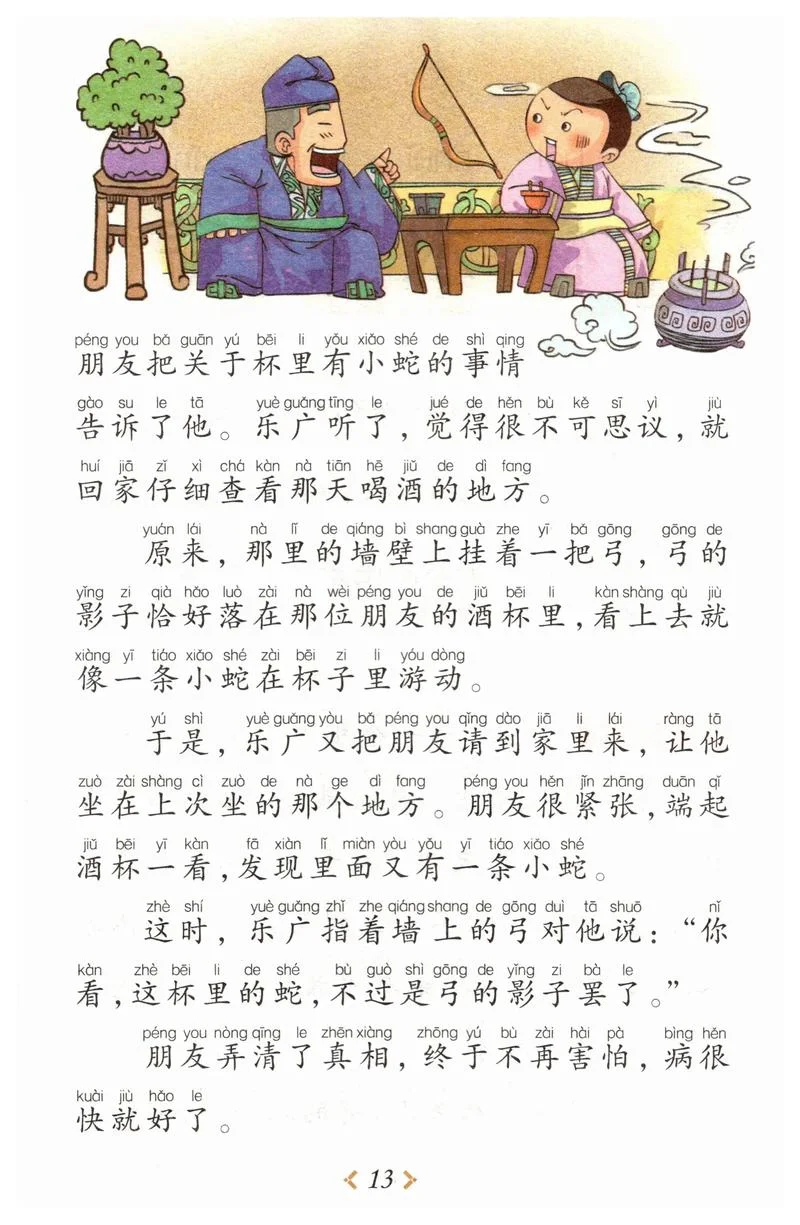 péng you bǎ guān yú bēi li yǒu xiǎo shé de shì qing
朋友把关于杯里有小蛇的事情
gào su le tā yuè guǎng tīng le jué de hěn bù kě sī yì jiù
告诉了他。乐广听了，觉得很不可思议，就
huí jiā zǐ xì chá kàn nà tiān hē jiǔ de dì fang
回家仔细查看那天喝酒的地方。
yuán lái nà lǐ de qiáng bì shang guà zhe yī bǎ gōng gōng de
原来，那里的墙壁上挂着一把弓，弓的
yǐng zi qià hǎo luò zài nà wèi péng you de jiǔ bēi li kàn shàng qù jiù
影子恰好落在那位朋友的酒杯里，看上去就
xiàng yī tiáo xiǎo shé zài bēi zi li yóu dòng
像一条小蛇在杯子里游动。
yú shì yuè guǎng yòu bǎ péng you qǐng dào jiā li lái ràng tā
于是，乐广又把朋友请到家里来，让他
zuò zài shàng cì zuò de nà ge dì fang péng you hěn jǐn zhāng duān qǐ
坐在上次坐的那个地方。朋友很紧张，端起
jiǔ bēi yī kàn fā xiàn lǐ miàn yòu yǒu yī tiáo xiǎo shé
酒杯一看，发现里面又有一条小蛇。
zhè shí yuè guǎng zhǐ zhe qiáng shang de gōng duì tā shuō nǐ
这时，乐广指着墙上的弓对他说：“你
kàn zhè bēi li de shé bù guò shì gōng de yǐng zi bà le
看，这杯里的蛇，不过是弓的影子罢了。”
péng you nòng qīng le zhēn xiàng zhōng yú bù zài hài pà bìng hěn
朋友弄清了真相，终于不再害怕，病很
kuài jiù hǎo le
快就好了。
13